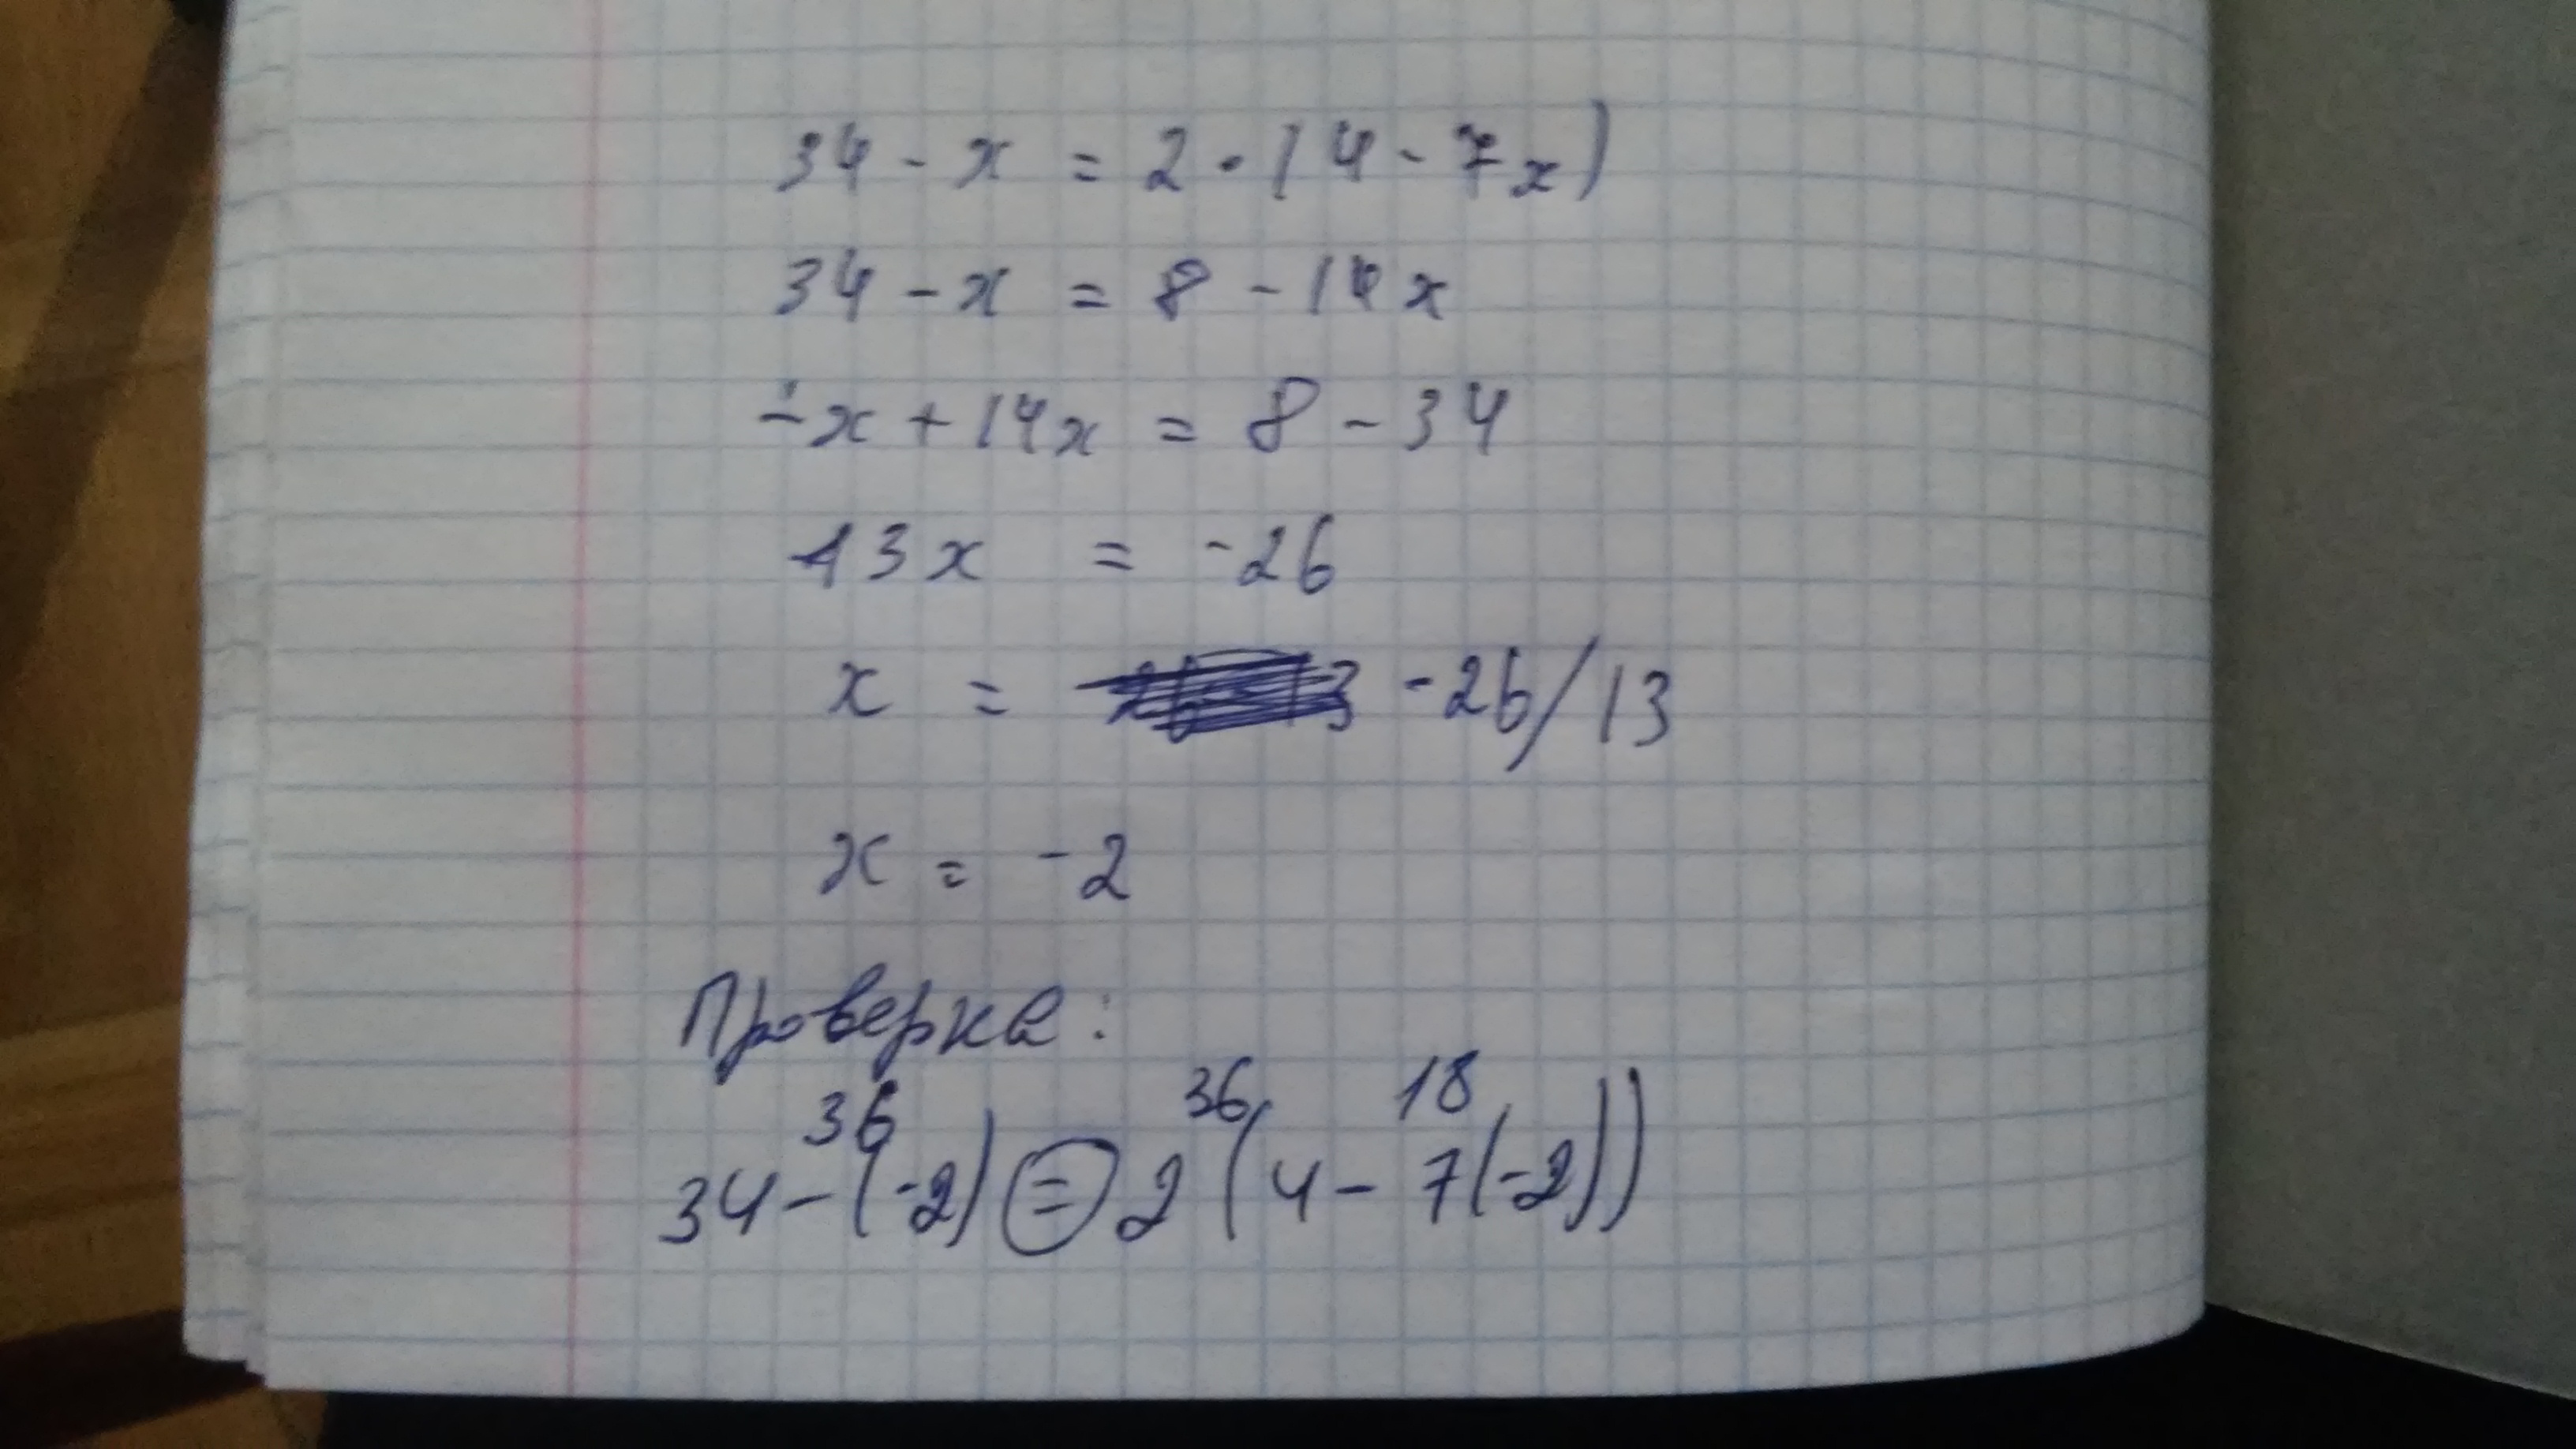 34 - x = 2 · (4 - 7x)
34 - x = 8 - 14x
-x + 14x = 8 - 34
13x = -26
x = -26/13
x = -2
Проверка:
36 36 18
34 - (-2) = 2 (4 - 7(-2))